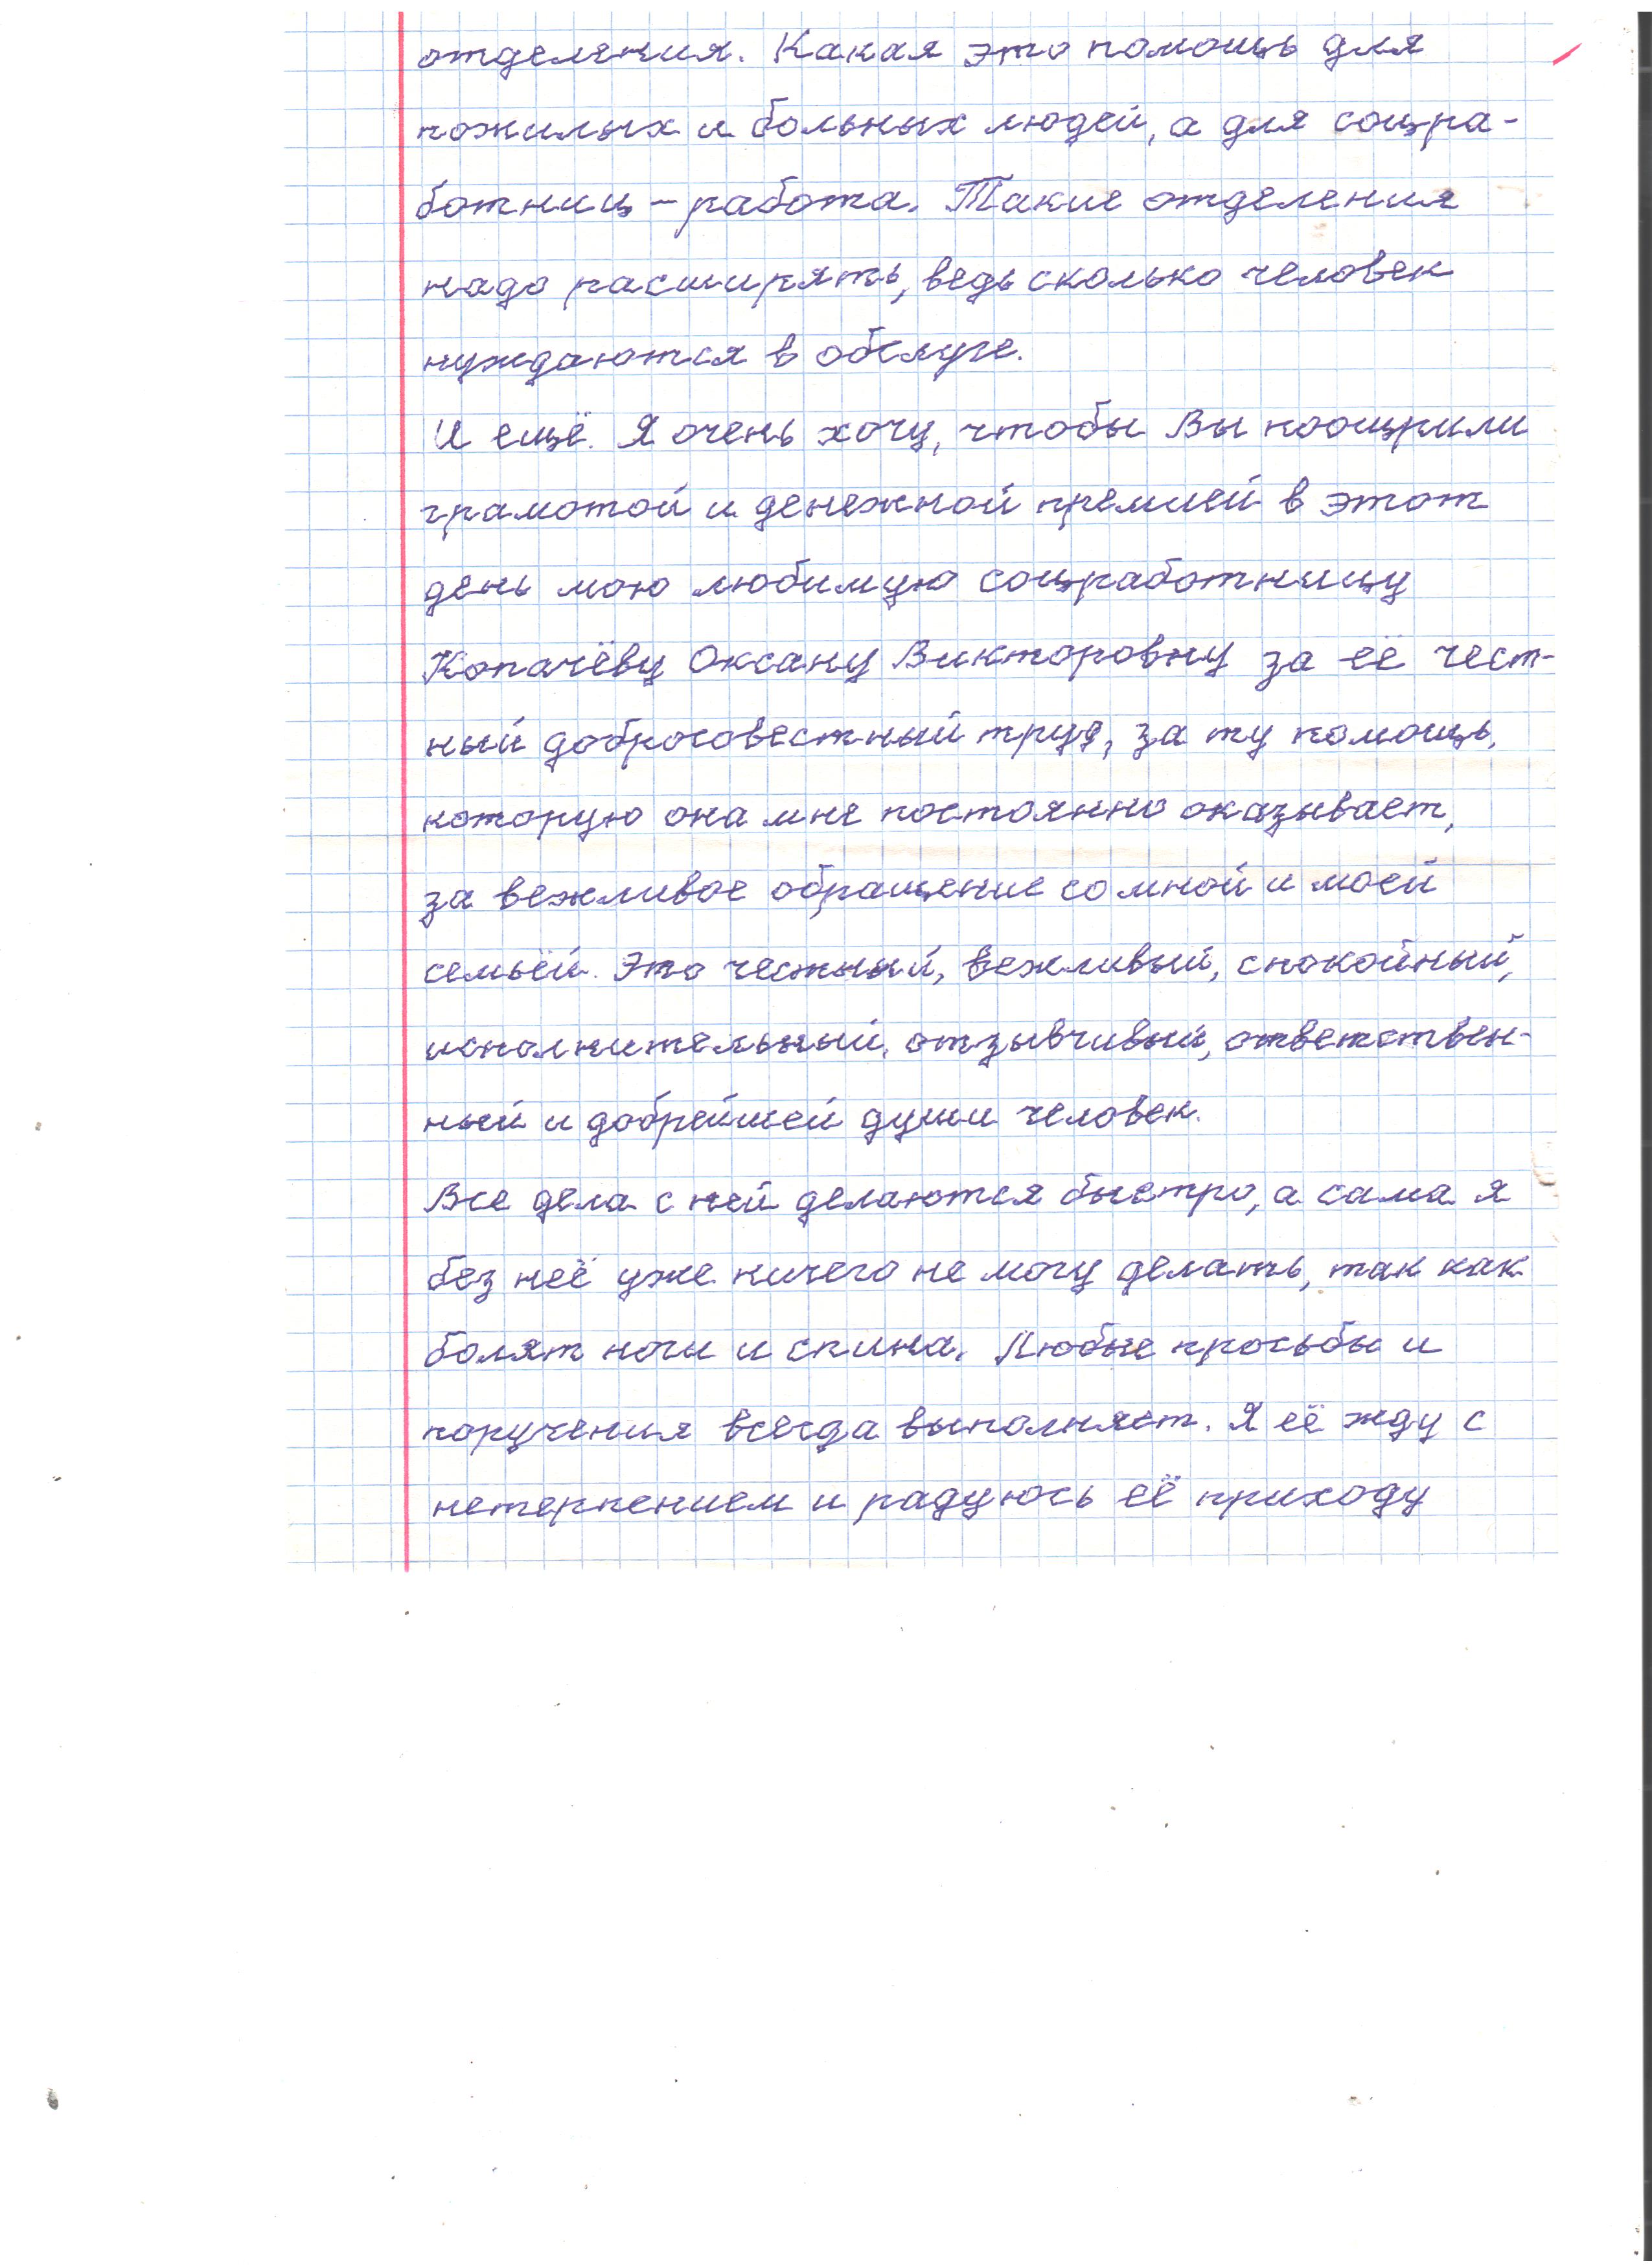 отделения. Какая это помощь для
пожилых и больных людей, а для соцра-
ботниц - работа. Такие отделения
надо расширять, ведь сколько человек
нуждаются в обслуге.
И ещё. Я очень хочу, чтобы Вы поощрили
грамотой и денежной премией в этот
день мою любимую соцработницу
Копачёву Оксану Викторовну за её чест-
ный добросовестный труд, за ту помощь,
которую она мне постоянно оказывает,
за вежливое обращение со мной и моей
семьёй. Это честный, вежливый, спокойный,
исполнительный, отзывчивый, ответствен-
ный и добрейшей души человек.
Все дела с ней делаются быстро, а сама я
без неё уже ничего не могу делать, так как
болят ноги и спина. Любые просьбы и
поручения всегда выполняет. Я её жду с
нетерпением и радуюсь её приходу